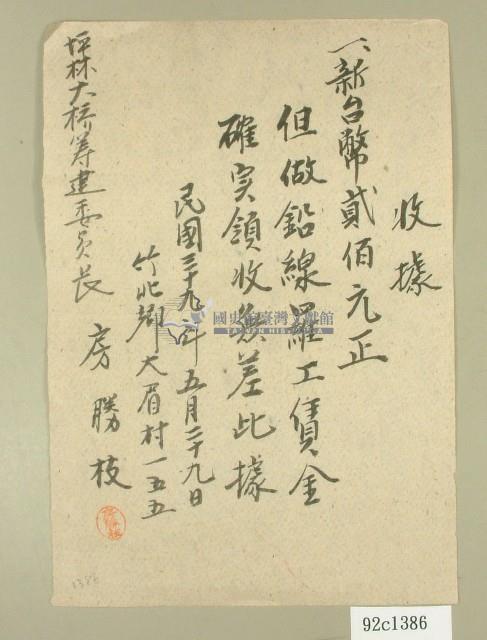 收據
一、新台幣貳佰元正
但做鉛線羅工賃金
確实領收無差此據
民國三十九年五月二十九日
竹北郡大眉村一五五
房勝枝
坪林大桥筹建委員長
國史館臺灣文獻館
TAIWAN HISTORICA
1386
92c1386